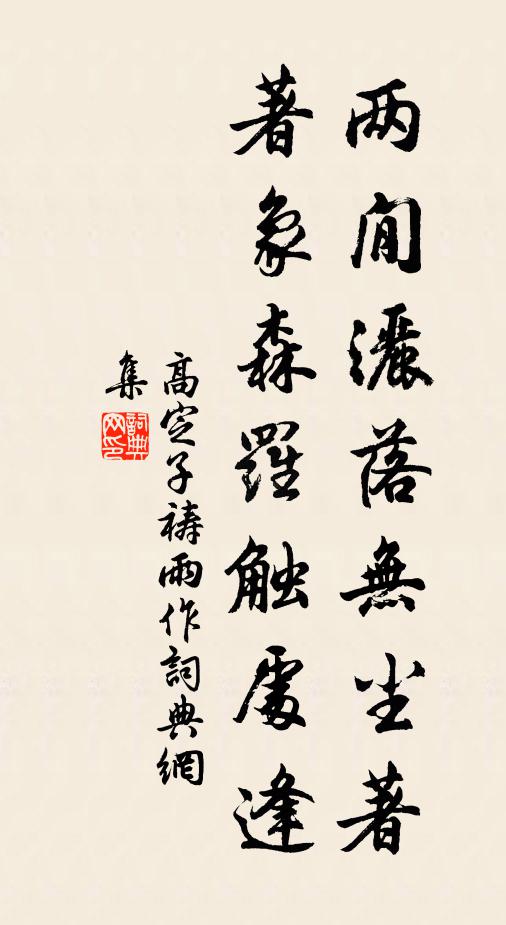 两间灑落無尘著
著象森羅触處逢
高定子禱雨作詞典網
集
詞典
网印